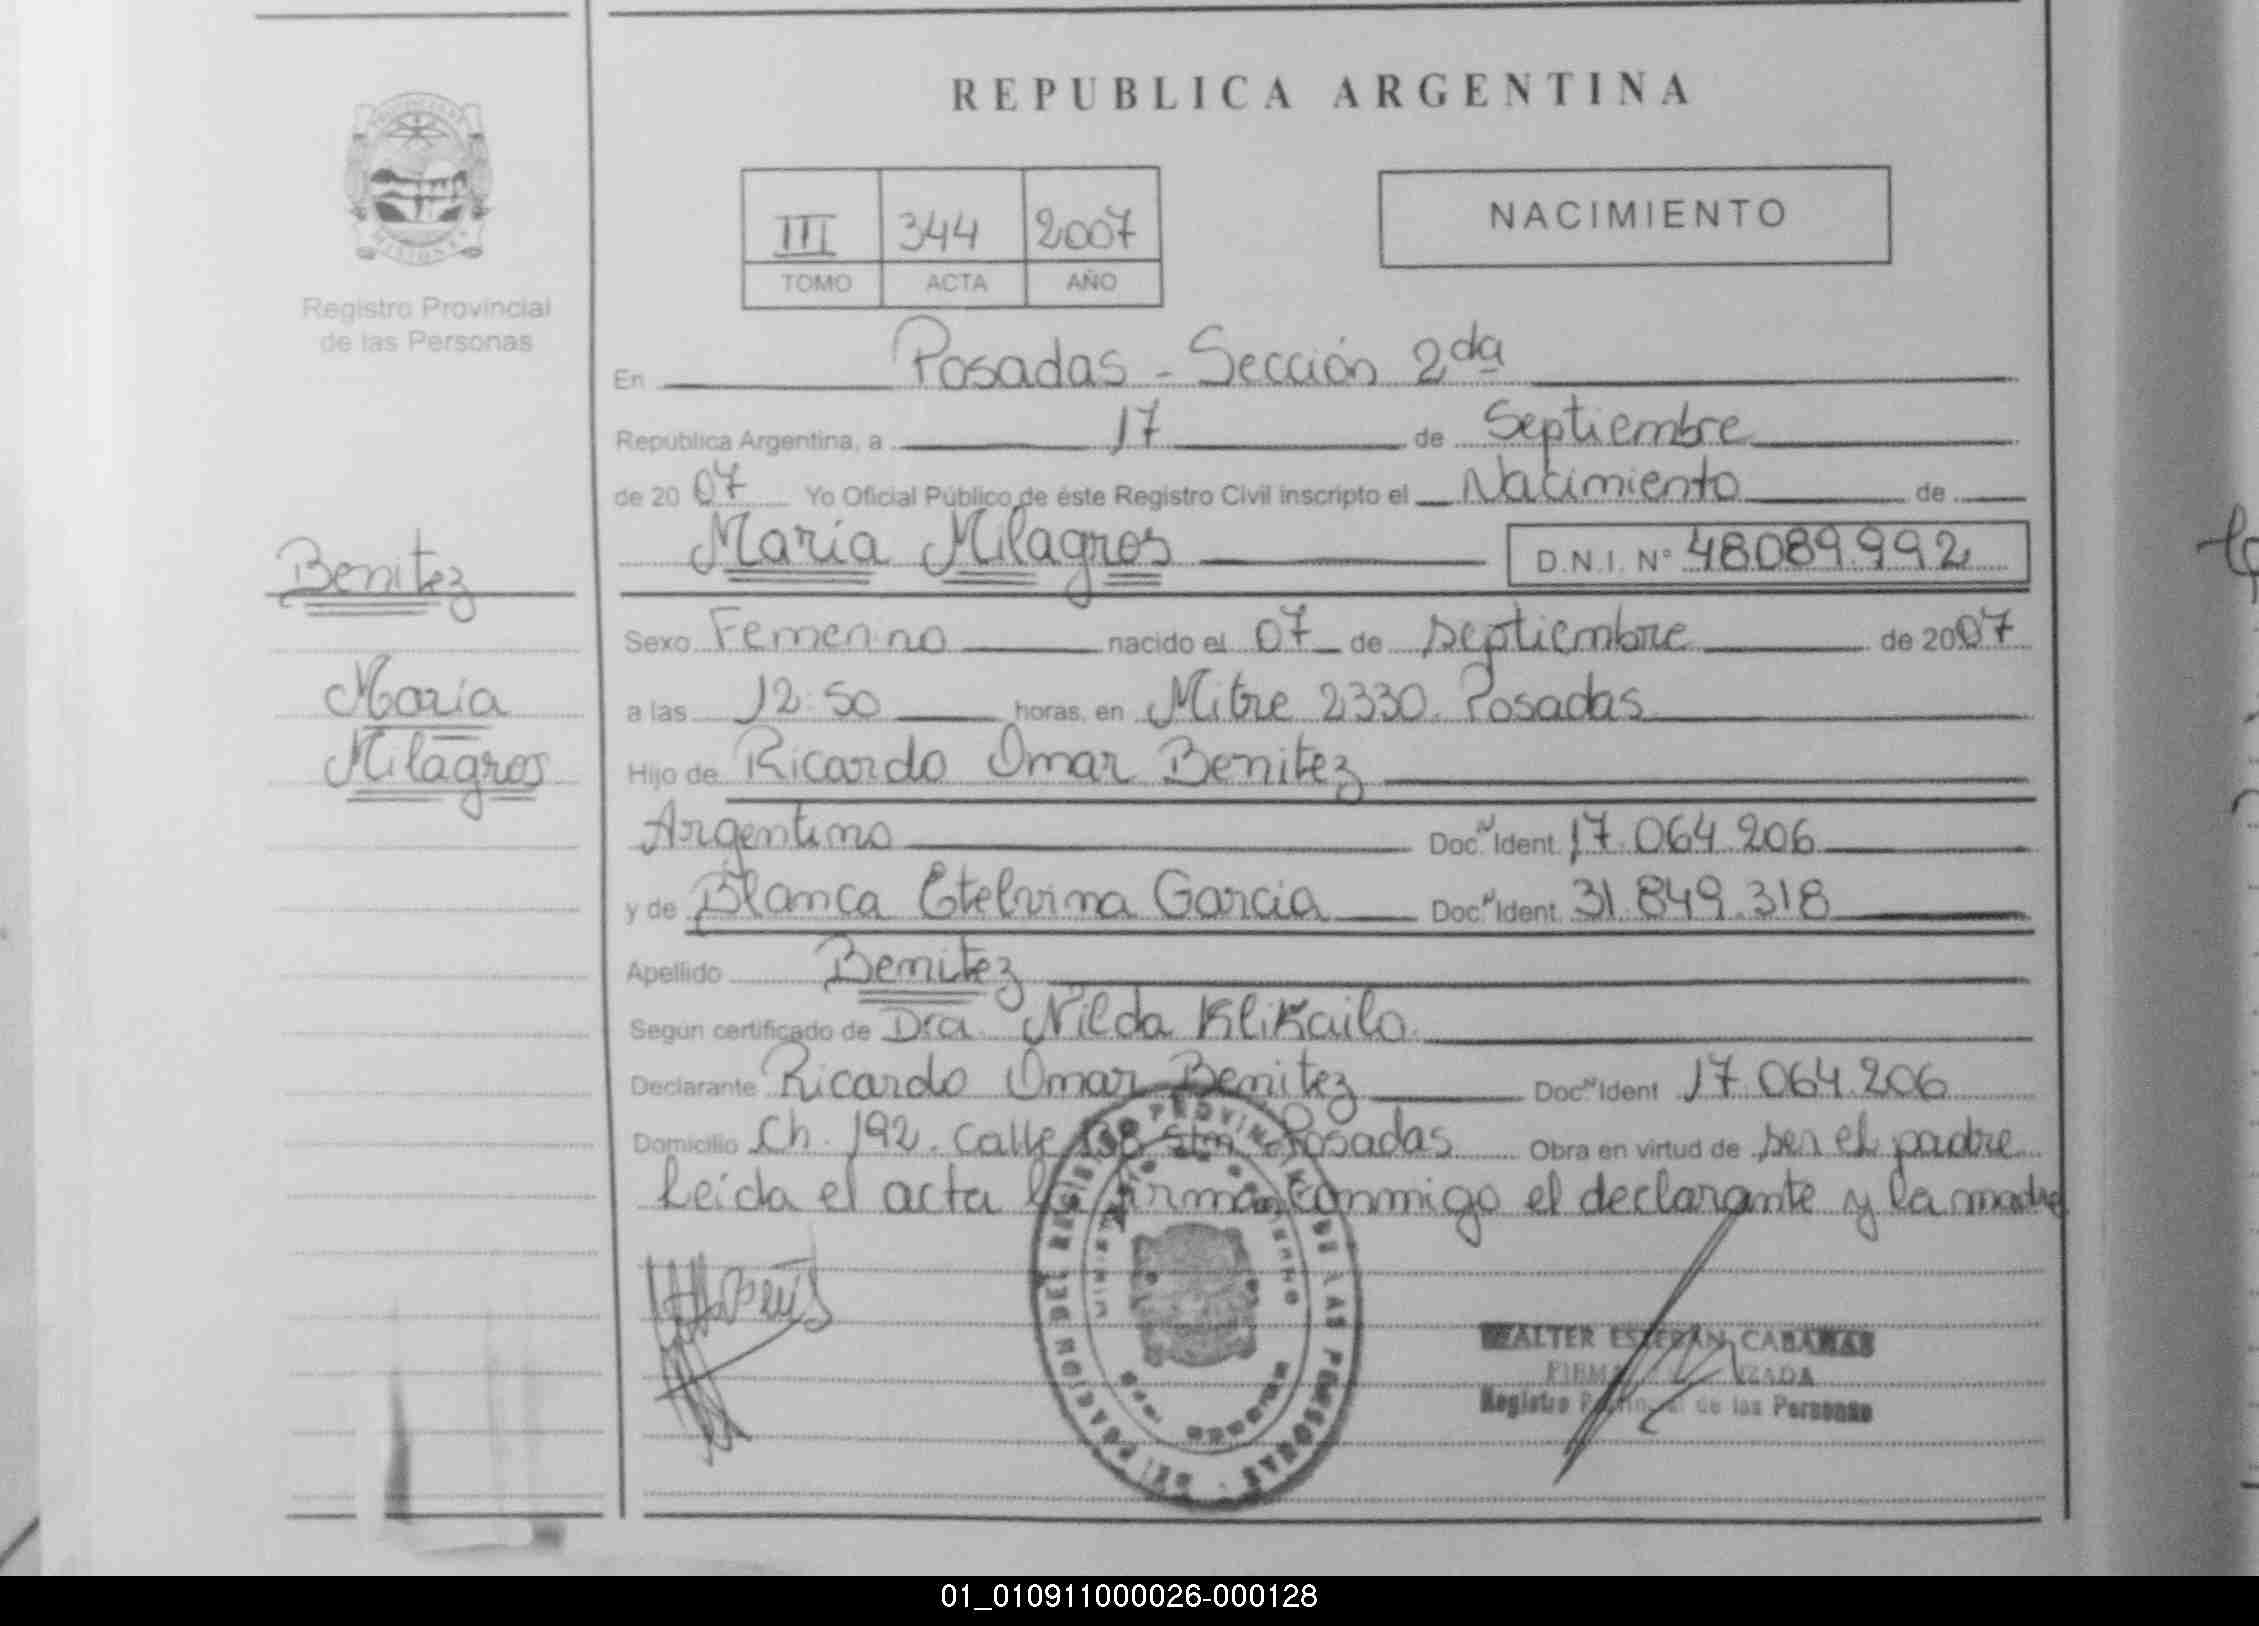 REPUBLICA ARGENTINA
III 344 2007
TOMO ACTA AÑO
NACIMIENTO
Registro Provincial
de las Personas
En Posadas - Sección 2da
Republica Argentina, a 17 de Septiembre
de 2007 Yo Oficial Público de éste Registro Civil inscripto el Nacimiento de
Maria Milagros D.N.I. Nº 48089.992
Benitez
Maria
Milagros
Sexo Femenino nacido el 07 de septiembre de 2007
a las 12:50 horas, en Mitre 2330. Posadas
Hijo de Ricardo Omar Benitez
Argentino Doc. Ident. 17.064.206
y de Blanca Etelvina Garcia Doc. Ident. 31.849.318
Apellido Benitez
Según certificado de Dra. Nilda Klikailo.
Declarante Ricardo Omar Benitez Doc. Ident 17.064.206
Domicilio Ch. 192. Calle 138 s/n Posadas Obra en virtud de ser el padre
Leida el acta la firman conmigo el declarante y la madre
REGISTRO PROVINCIAL DE LAS PERSONAS
WALTER ESTEBAN
FIRMA
Registro Provincial de las Personas
01_010911000026-000128